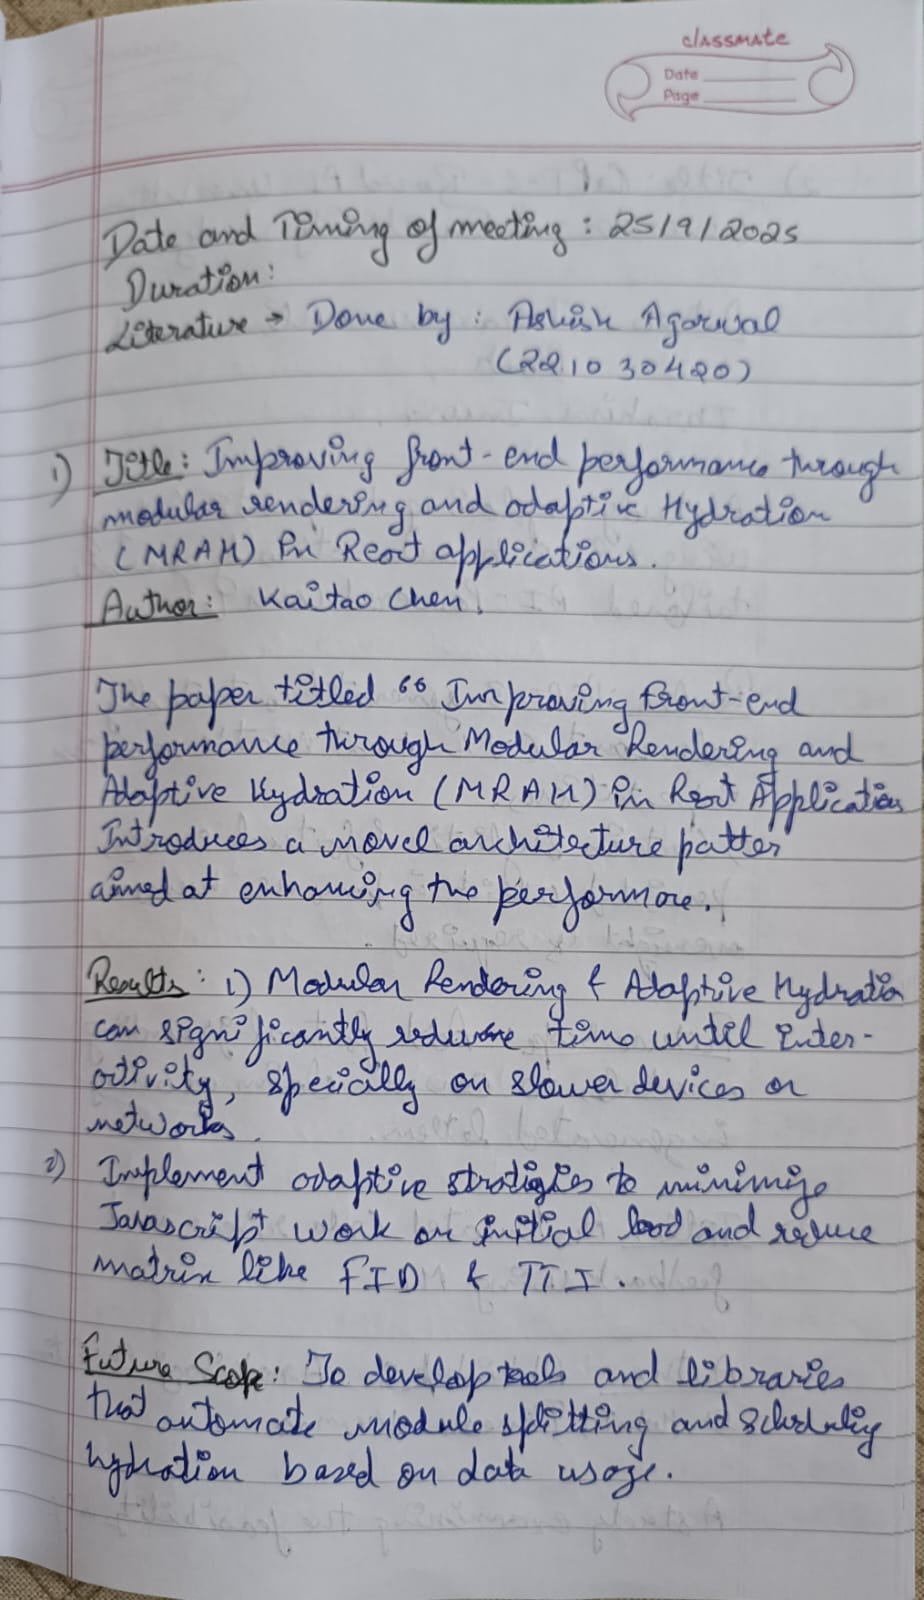 classmate
Date
Page
Date and Timing of meeting : 25/9/2025
Duration:
Literature → Done by : Ashish Agarwal
(221030420)
1) Title: Improving front-end performance through
modular rendering and adaptive Hydration
(MRAH) in React applications.
Author: Kaitao Chen.
The paper titled “ Improving front-end
performance through Modular Rendering and
Adaptive Hydration (MRAH) in React Application
Introduces a novel architecture patter
aimed at enhancing the performance.
Results: 1) Modular Rendering & Adaptive Hydration
can significantly reduce time until inter-
activity, specially on slower devices or
networks.
2) Implement adaptive stratigies to minimize
Javascript work on initial load and reduce
matrix like FID & TTI.
Future Scope: To develop tools and libraries
that automate module splitting and scheduling
hydration based on data usage.